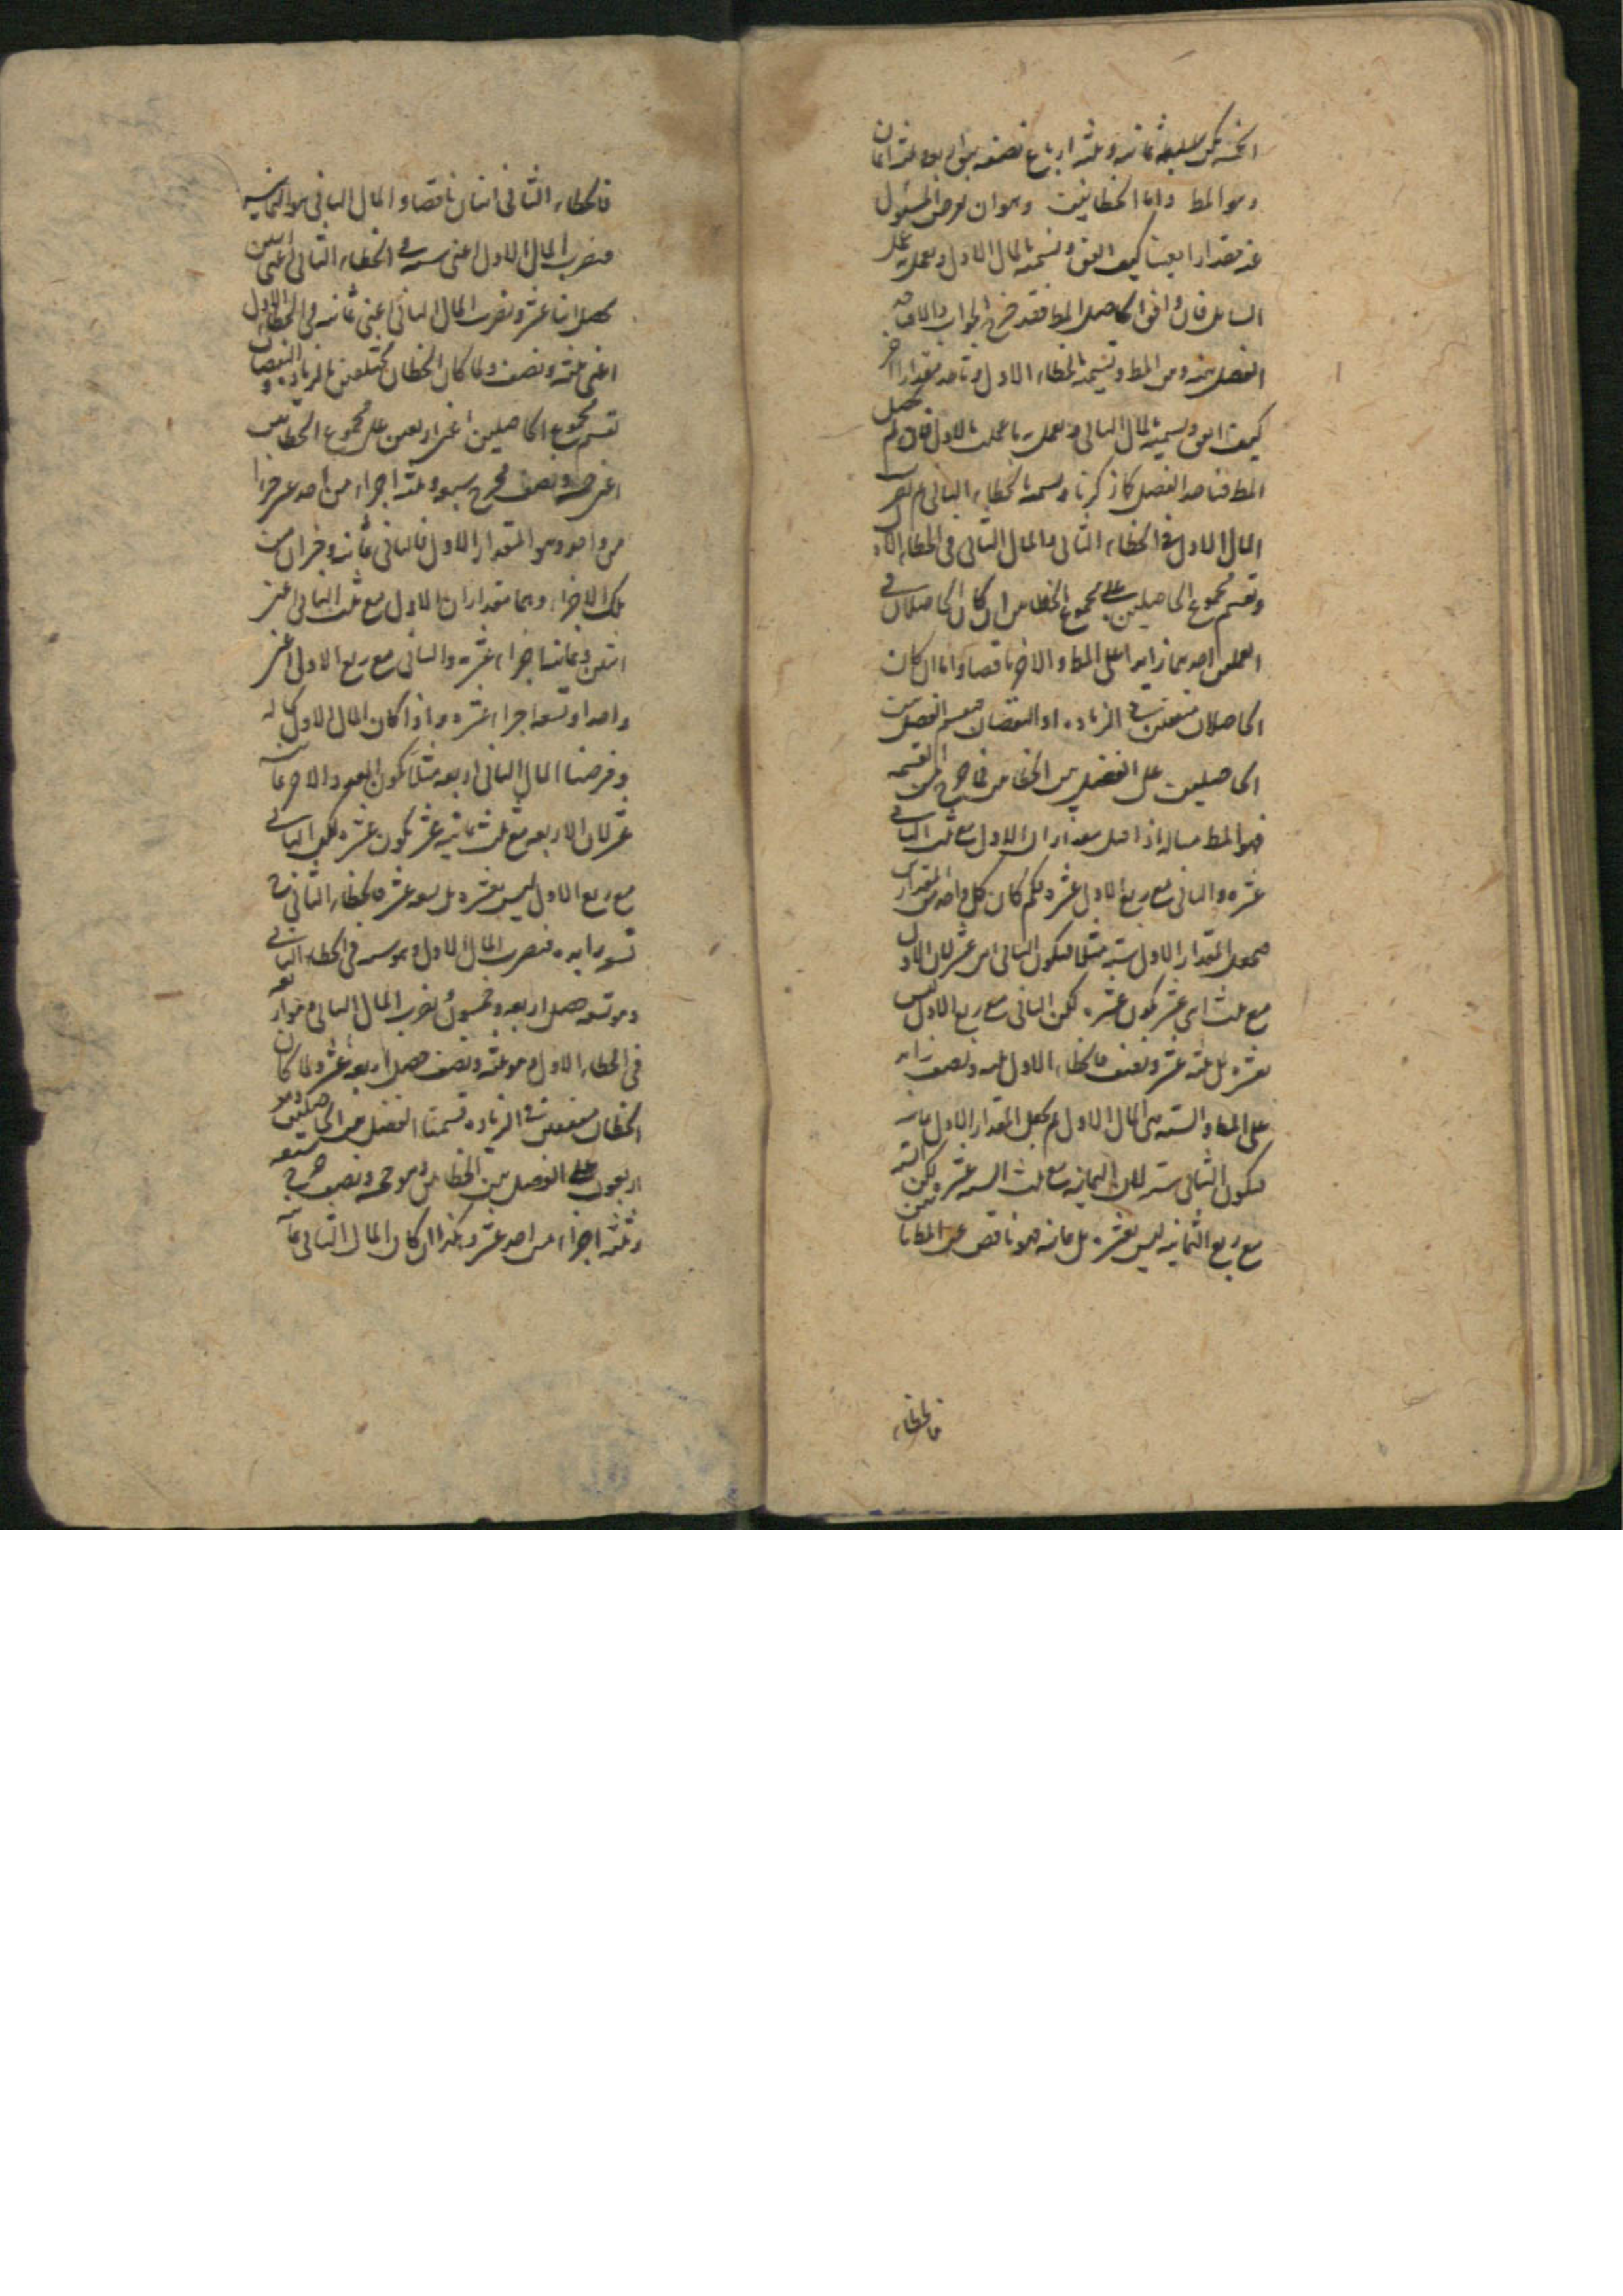 وهو المط واما الخطايين وهو ان يفرض المسئول
عنه مقدارا بعينه كيف اتفق وتسميه المال الاول وتعمل به عمل
السايل فان وافق الحاصل المط فقد خرج الجواب والا فخذ
الفضل بينه وبين المط وتسميه الخطاء الاول وتاخذ مقدارا اخر
كيف اتفق وتسميه المال الثانى وتعمل به ما عملت بالاول فان لم يحصل
المط فتاخذ الفضل كما ذكرنا وتسميه الخطاء الثانى ثم تضرب
المال الاول فى الخطاء الثانى والمال الثانى فى الخطاء الاول
وتقسم مجموع الحاصلين على مجموع الخطايين ان كان الحاصلان فى
العملين احدهما زايدا على المط والاخر ناقصا واما ان كان
الحاصلان متفقين فى الزيادة او النقصان فتقسم الفضل بين
الحاصلين على الفضل بين الخطايين فما خرج من القسمة
فهو المط مثاله اذا قيل مقداران الاول مع ثلث الثانى
عشرة والثانى مع ربع الاول عشرة فكم كان كل واحد من المقدارين
فنجعل المقدار الاول ستة مثلا فيكون الثانى اثنى عشر لان الاول
مع ثلث اثنى عشر يكون عشرة لكن الثانى مع ربع الاول ليس
بعشرة بل ثلثة عشر ونصف فالخطاء الاول ثلثة ونصف زايد
على المط والستة هى المال الاول ثم نجعل المقدار الاول ثمانية
فيكون الثانى ستة لان الثمانية مع ثلث الستة عشرة ولكن الستة
مع ربع الثمانية ليس بعشرة بل ثمانية فهو ناقص عن المط باثنين
فالخطاء
فالخطاء الثانى اثنان ناقصا والمال الثانى هو الثمانية
فنضرب المال الاول اعنى ستة فى الخطاء الثانى اعنى اثنين
يحصل اثنا عشر ونضرب المال الثانى اعنى ثمانية فى الخطاء الاول
اعنى ثلثة ونصف ولما كان الخطان مختلفين بالزيادة والنقصان
نقسم مجموع الحاصلين اعنى اربعين على مجموع الخطايين
اعنى خمسة ونصف فخرج سبعة وثلثة اجزاء من احد عشر جزءا
من واحد وهو المقدار الاول فالثانى ثمانية وجزان من
تلك الاجزاء وهما مقداران الاول مع ثلث الثانى اعنى
اثنين وثمانية اجزاء عشرة والثانى مع ربع الاول اعنى
واحدا وتسعة اجزاء عشرة واذا كان المال الاول بحاله
وفرضنا المال الثانى اربعة مثلا يكون المقدار الاخر ثمانية
عشر لان الاربعة مع ثلث ثمانية عشر يكون عشرة لكن الثانى
مع ربع الاول ليس بعشرة بل تسعة عشر فالخطاء الثانى
تسعة زايدة فنضرب المال الاول وهو ستة فى الخطاء الثانى
وهو تسعة حصل اربعة وخمسون ونضرب المال الثانى وهو اربعة
فى الخطاء الاول وهو ثلثة ونصف حصل اربعة عشر ولما كان
الخطان متفقين فى الزيادة قسمنا الفضل بين الحاصلين وهو
اربعون على الفضل بين الخطايين وهو خمسة ونصف خرج سبعة
وثلثة اجزاء من احد عشر وكذا ان كان المال الثانى ثمانية